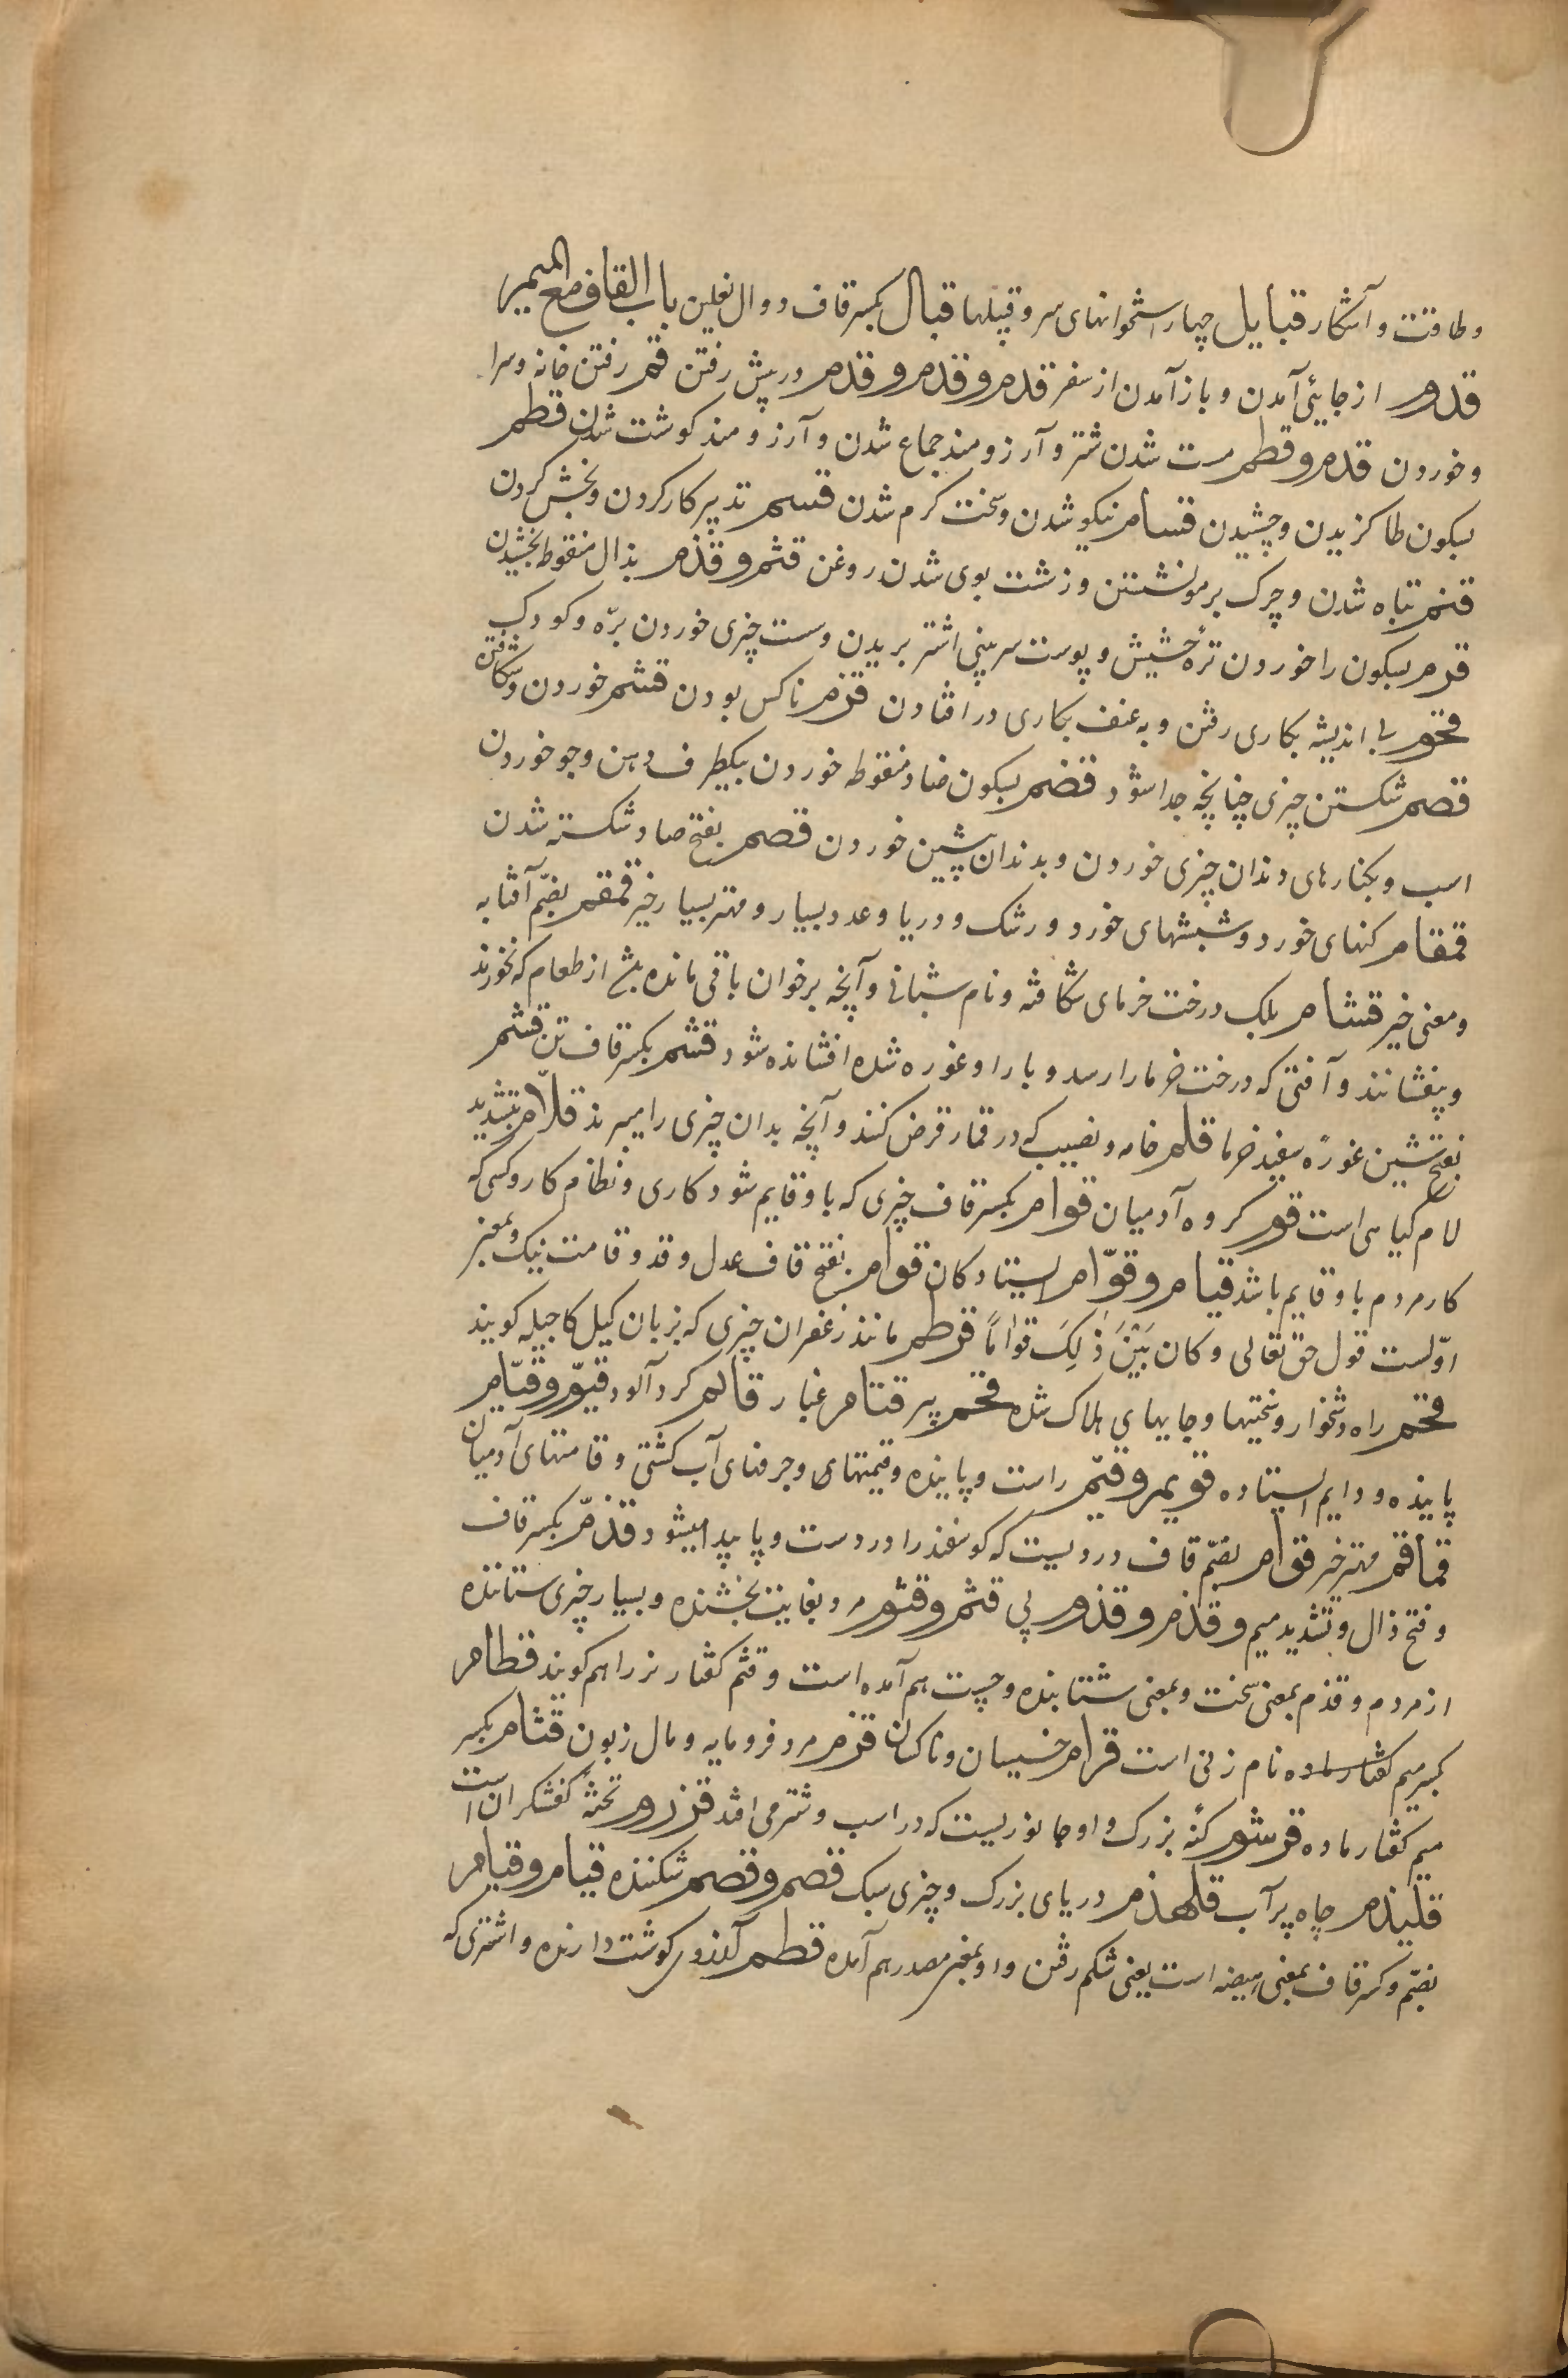 وطاقت و آشکار قبایل چهار استخوانهای سر و قبیلها قبال بکسر قاف دوال نعلین باب القاف مع المیم
قدوم از جایئی آمدن و باز آمدن از سفر قدم و قدم و قدم در پیش رفتن قم رفتن خانه و سرا
و خوردن قدم و قطم مست شدن شتر و آرزومند جماع شدن و آرزومند کوشت شدن قطم
بسکون طا کزیدن و چشیدن قسام نیکو شدن و سخت کرم شدن قسم تدبیر کار کردن و بخش کردن
قنم تباه شدن و چرک بر مو نشستن و زشت بوی شدن روغن قثم و قذم بذال منقوط بخشیدن
قرم بسکون را خوردن ترهٔ حشیش و پوست سر بینی اشتر بریدن و سست چیزی خوردن برّه و کودک
قحوم بی اندیشه بکاری رفتن و به عنف بکاری در افتادن قزم ناکس بودن قشم خوردن و شکافتن
قصم شکستن چیزی چنانچه جدا شود قضم بسکون ضاد منقوطه خوردن بیکطرف دهن و جو خوردن
اسب و بکنارهای دندان چیزی خوردن و بدندان پیشین خوردن قصم بفتح صاد شکسته شدن
قمقام کنهای خورد و شبشهای خورد و رشک و دریا و عدد بسیار و مهتر بسیار خیر قمقم بضمّ آفتابه
و معنی خیر قشام بلک درخت خرمای شکافته و نام شبانی و آنچه بر خوان باقی مانده باشد از طعام که نخورند
و بیفشانند و آفتی که درخت خرما را رسد و بار او غوره شده افشانده شود قشم بکسر قاف تن قشم
بفتح شین غورهٔ سفید خرما قلم خامه و نصیب که در قمار قرض کنند و آنچه بدان چیزی را میبرند قلّام بتشدید
لام کیاهی است قوم کروه آدمیان قوام بکسر قاف چیزی که باو قایم شود کاری و نظام کار و کسی که
کار مردم باو قایم باشد قیام و قوّام ایستادکان قوام بفتح قاف عدل و قد و قامت نیک و بمعنی
اوّلست قول حق تعالی و کان بَیْنَ ذٰلِکَ قوامًا قرطم مانند زعفران چیزی که بزبان کیل کاجیله کویند
قحم راه دشخوار و سختیها و جایهای هلاک شده قحم پیر قتام غبار قاتم کرد آلود قیّوم و قیّام
پاینده و دایم ایستاده قویم و قیّم راست و پاینده و قیمتهای و جرفهای آب کشتی و قامتهای آدمیان
قماقم مهتر خیر قوام بضمّ قاف دردیست که کوسفند را در دست و پا پیدا میشود قذمّ بکسر قاف
و فتح ذال و تشدید میم و قذم و قذوم پی قثم و قثوم مرد بغایت بخشنده و بسیار چیزی ستاننده
از مردم و قذم بمعنی سخت و بمعنی شتابنده و چست هم آمده است و قثم کفتار نر را هم کویند قطام
بکسر میم کفتار ماده نام زنی است قزام خسیسان و ناکسان قزم مرد فرومایه و مال زبون قثام بکسر
میم کفتار ماده قرشوم کنهٔ بزرک و او جانوریست که در اسب و شتر می افتد قرزوم تختهٔ کفشکران است
قلیذم چاه پر آب قلهذم دریای بزرک و چیزی سبک قصم و قصم شکننده قیام و قیام
بضمّ و کسر قاف بمعنی هیضه است یعنی شکم رفتن و او بمعنی مصدر هم آمده قطم آرزوی کوشت دارنده و اشتری که